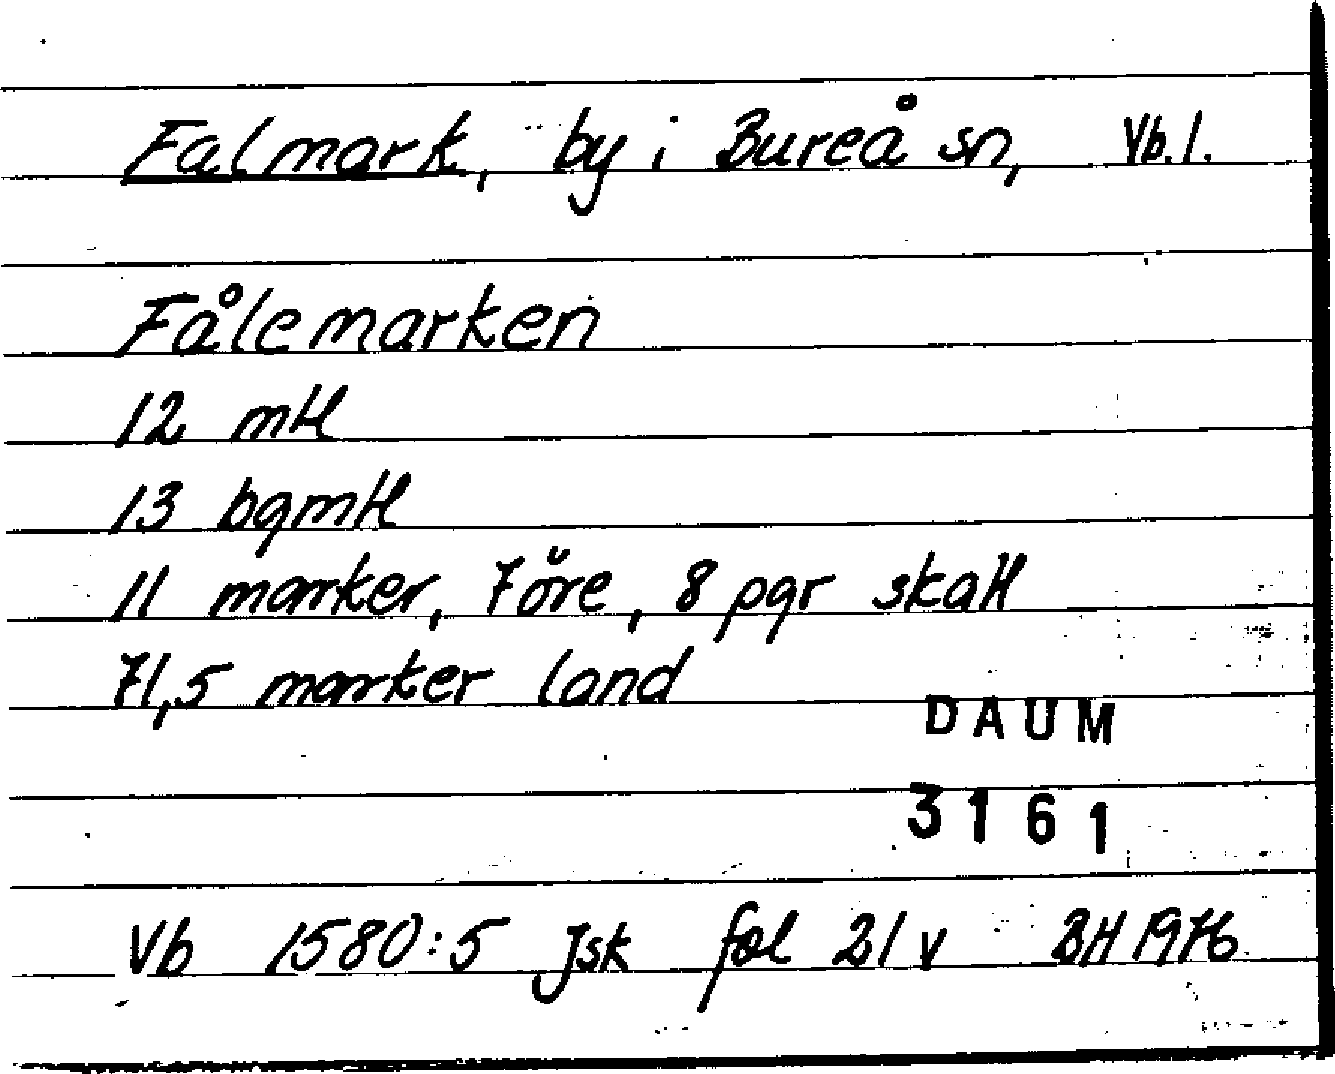 Falmark, by i Bureå sn, Vb. l.
Fålemarken
12 mtl
13 bgmtl
11 marker, 7 öre, 8 pgr skatt
71,5 marker land
DAUM
3161
Vb 1580:5 Jsk fol 21 v BH 1976